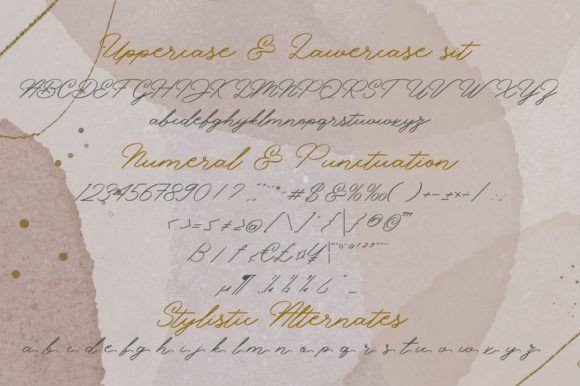 Uppercase & Lawercase sit
ABCDEFGHIJKLMNOPQRST UV W XYZ
abcdefghijklmnopqrstuvwxyz
Numeral & Punctuation
1234567890 ! ? #$&%‰( )+-±×÷/
<>=≤≠≥@/\/{|}©®™
€£¤¥
µ¶
Stylistic Alternates
a b c d e f g h i j k l m n o p q r s t u v w x y z